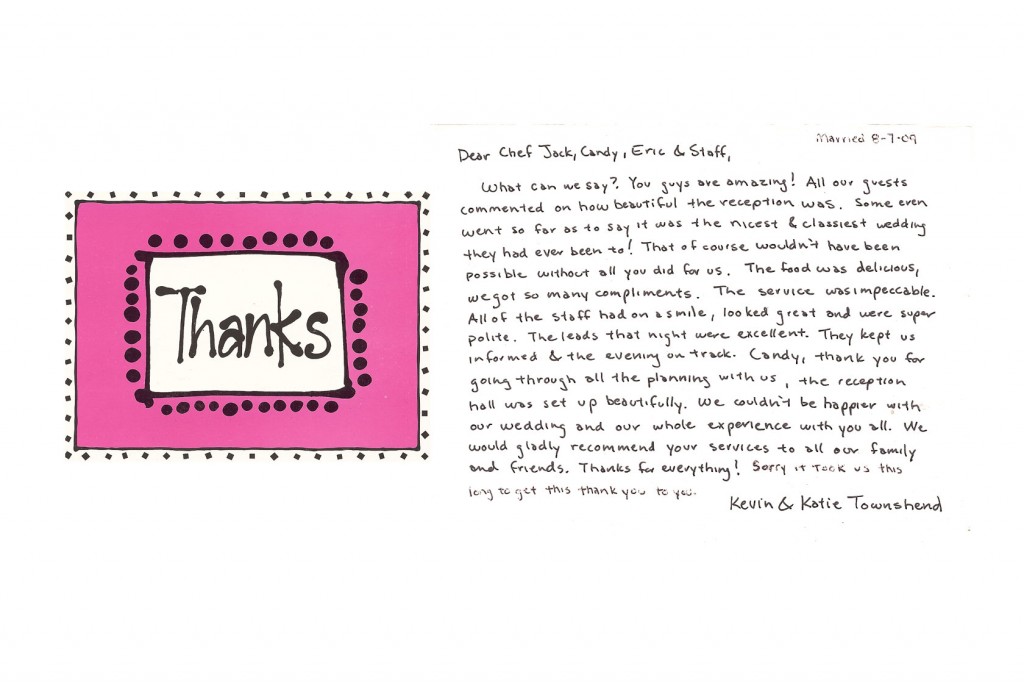 Thanks
Married 8-7-09
Dear Chef Jack, Candy, Eric & Staff,
What can we say? You guys are amazing! All our guests
commented on how beautiful the reception was. Some even
went so far as to say it was the nicest & classiest wedding
they had ever been to! That of course wouldn't have been
possible without all you did for us. The food was delicious,
we got so many compliments. The service was impeccable.
All of the staff had on a smile, looked great and were super
polite. The leads that night were excellent. They kept us
informed & the evening on track. Candy, thank you for
going through all the planning with us, the reception
hall was set up beautifully. We couldn't be happier with
our wedding and our whole experience with you all. We
would gladly recommend your services to all our family
and friends. Thanks for everything! Sorry it took us this
long to get this thank you to you.
Kevin & Katie Townshend